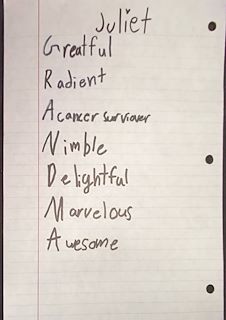 Juliet
Greatful
Radient
A cancer surviover
Nimble
Delightful
Marvelous
Awesome